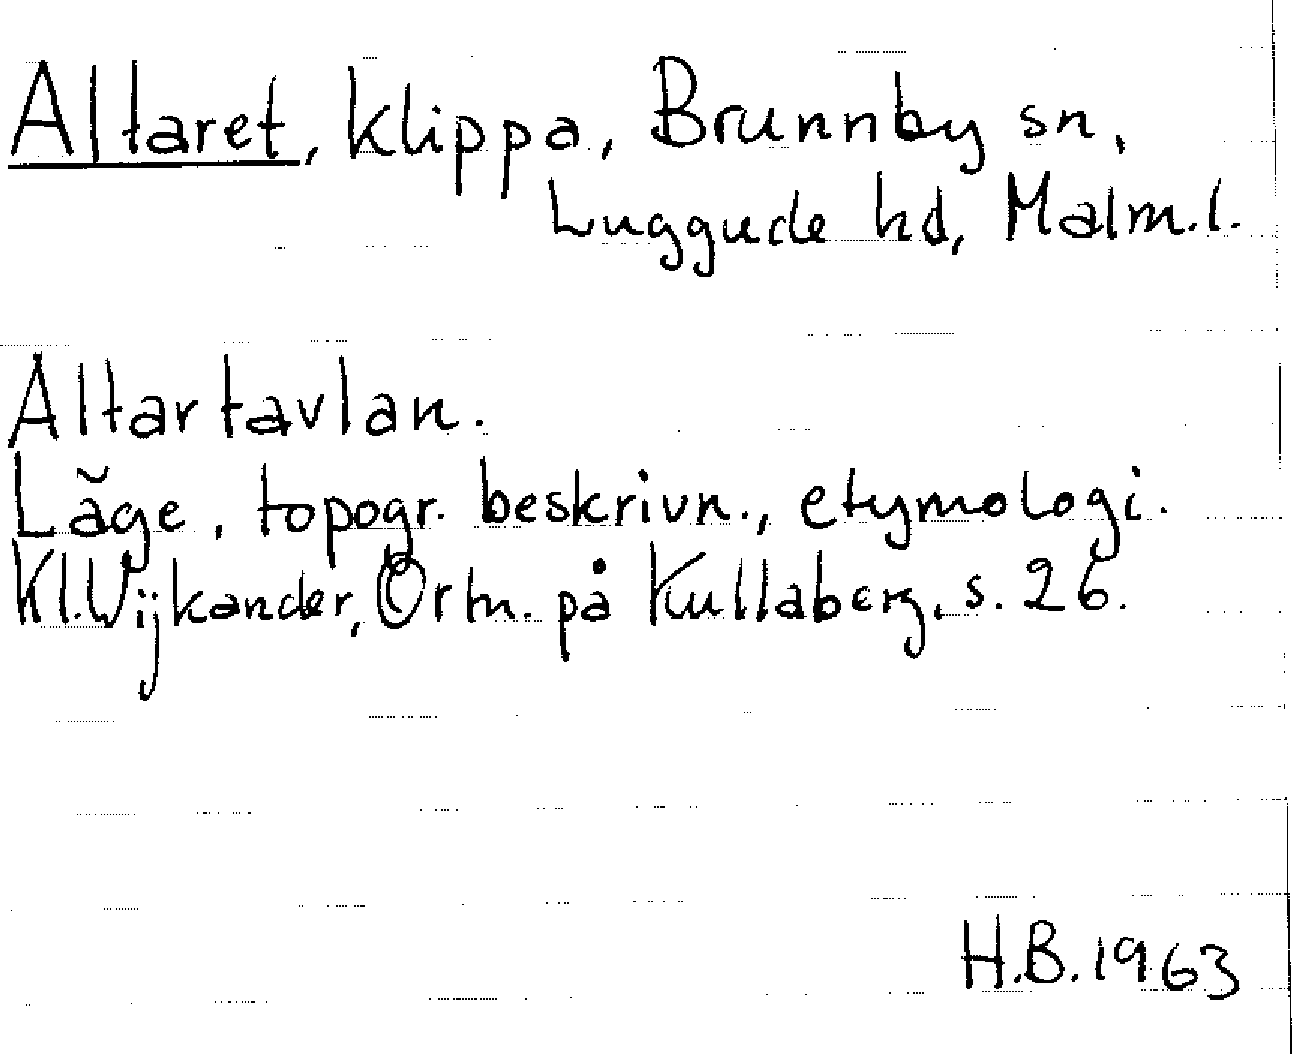 Altaret, klippa, Brunnby sn,
Luggude hd, Malm.l.
Altartavlan.
Läge, topogr. beskrivn., etymologi.
Kl.Wijkander, Ortn. på Kullaberg, s. 26.
H.B. 1963